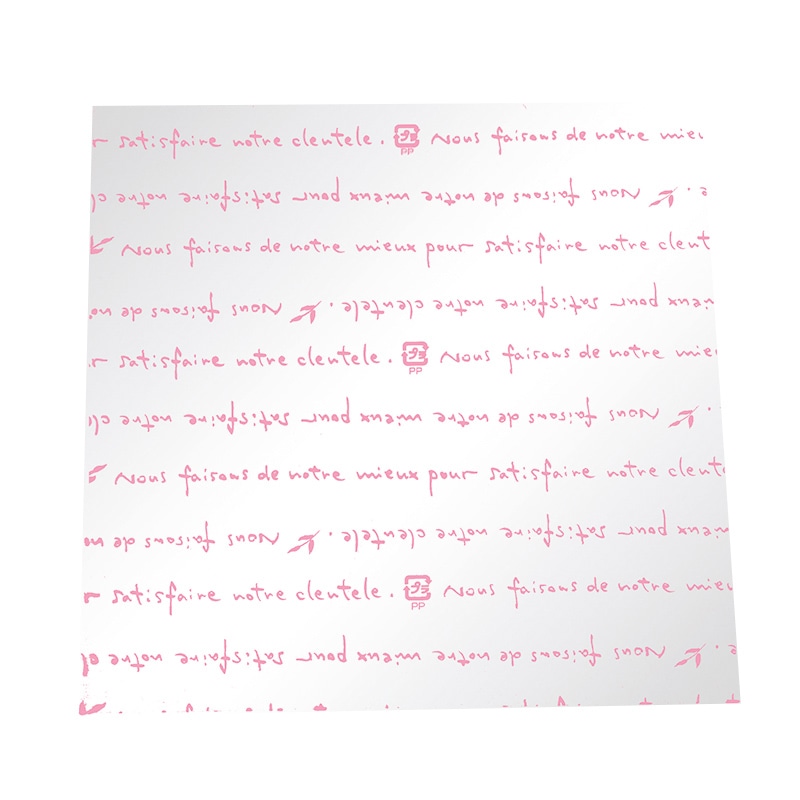 satisfaire notre clentele. プラ Nous faisons de notre
PP
Nous faisons de notre mieux pour satisfaire notre
Nous faisons de notre mieux pour satisfaire notre
Nous faisons de mieux pour satisfaire notre clentele.
satisfaire notre clentele. プラ Nous faisons de notre
PP
Nous faisons de notre mieux pour satisfaire notre
Nous faisons de notre mieux pour satisfaire notre
pour satisfaire notre clentele. Nous faisons de
satisfaire notre clentele. プラ Nous faisons de notre
PP
Nous faisons de notre mieux pour satisfaire notre